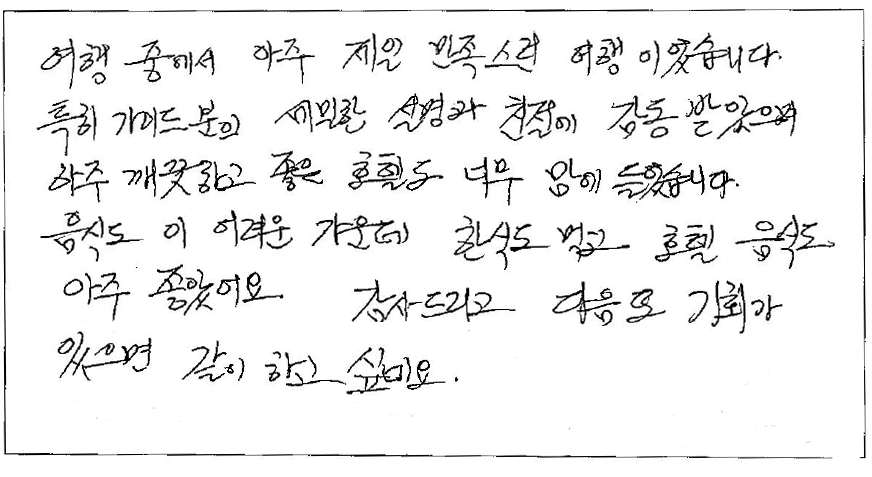 여행 중에서 아주 제일 만족스런 여행 이었습니다.
특히 가이드 분의 세밀한 설명과 친절에 감동 받았으며
아주 깨끗하고 좋은 호텔도 너무 맘에 들었습니다.
음식도 이 어려운 가운데 한식도 먹고 호텔 음식도
아주 좋았어요. 감사드리고 다음 또 기회가
있으면 같이 하고 싶네요.